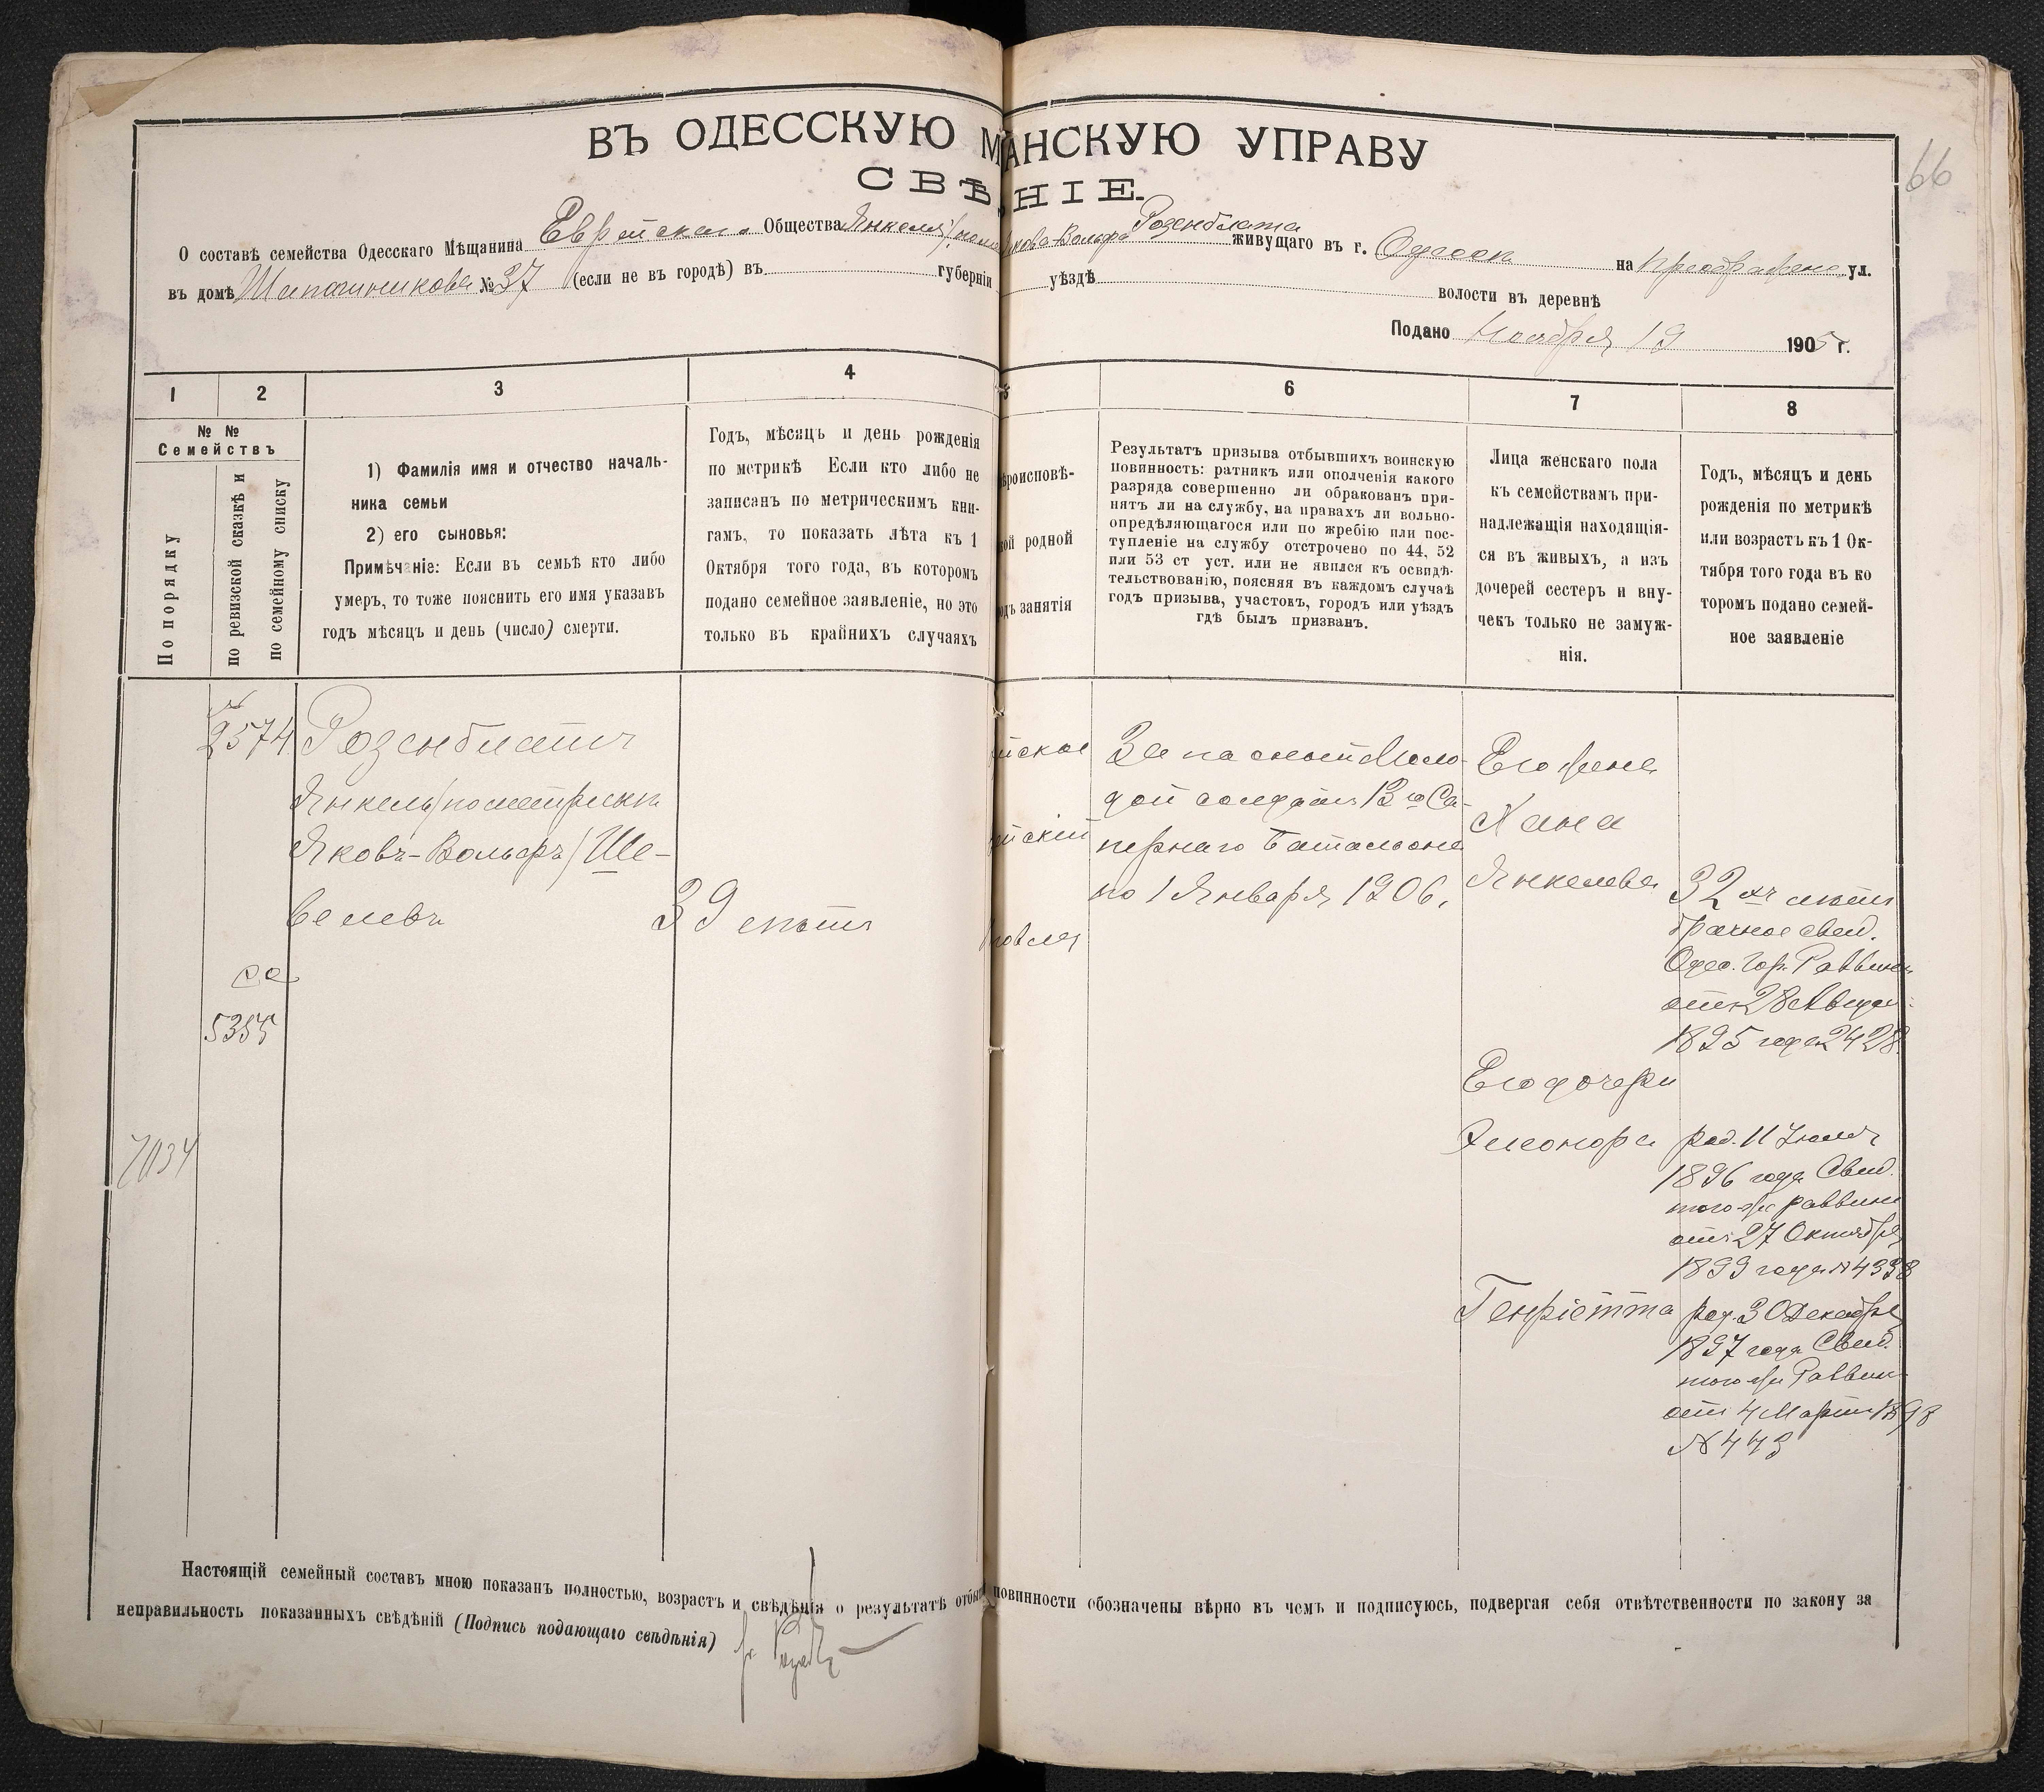 66
ВЪ ОДЕССКУЮ М АНСКУЮ УПРАВУ
СВѢ НІЕ.
О составѣ семейства Одесскаго Мѣщанина Еврейскаго Общества Янкеля Якова-Вольфа Розенблата живущаго въ г. Одессѣ на Преображенс. ул.
въ домѣ № 37 (если не въ городѣ) въ губерніи уѣздѣ волости въ деревнѣ
Подано Ноября 19 1905 г.
1 2 3 4 5 6 7 8
№ №
Семействъ
По порядку
по ревизской сказкѣ и
по семейному списку
1) Фамилія имя и отчество началь-
ника семьи
2) его сыновья:
Примѣчаніе: Если въ семьѣ кто либо
умеръ, то тоже пояснить его имя указавъ
годъ мѣсяцъ и день (число) смерти.
Годъ, мѣсяцъ и день рожденія
по метрикѣ Если кто либо не
записанъ по метрическимъ кни-
гамъ, то показать лѣта къ 1
Октября того года, въ которомъ
подано семейное заявленіе, но это
только въ крайнихъ случаяхъ
ѣроисповѣ-
кой родной
одъ занятія
Результатъ призыва отбывшихъ воинскую
повинность: ратникъ или ополченія какого
разряда совершенно ли обракованъ при-
нятъ ли на службу, на правахъ ли вольно-
опредѣляющагося или по жребію или пос-
тупленіе на службу отстрочено по 44, 52
или 53 ст уст. или не явился къ освидѣ-
тельствованію, поясняя въ каждомъ случаѣ
годъ призыва, участокъ, городъ или уѣздъ
гдѣ былъ призванъ.
Лица женскаго пола
къ семействамъ при-
надлежащія находящія-
ся въ живыхъ, а изъ
дочерей сестеръ и вну-
чекъ только не замуж-
нія.
Годъ, мѣсяцъ и день
рожденія по метрикѣ
или возрастъ къ 1 Ок-
тября того года въ ко
торомъ подано семей-
ное заявленіе
№
2574
Розенблатъ
Янкель/по метрикѣ
Яковъ-Вольфъ/Ше-
велевъ
39 лѣтъ
са
5355
7034
йское
ейскій
говля
Запасной Моло-
дой солдатъ 13го Са-
пернаго Баталіона
по 1 Января 1906,
Его жена
Хана
Янкелева
32хъ лѣтъ
брачное свид.
Одес. Гор. Раввина
отъ 28 Августа
1895 года 2428.
Его дочери
Элеонора
род. 11 Іюля
1896 года Свид.
того-же раввина
отъ 27 Октября
1899 года № 4338
Генріетта
род. 30 Декабря
1897 года Свид.
того же Раввин.
отъ 4 Марта 1898
№ 443
Настоящій семейный составъ мною показанъ полностью, возрастъ и свѣдѣнія о результатѣ отбы повинности обозначены вѣрно въ чемъ и подписуюсь, подвергая себя отвѣтственности по закону за
неправильность показанныхъ свѣдѣній (Подпись подающаго свѣдѣнія)